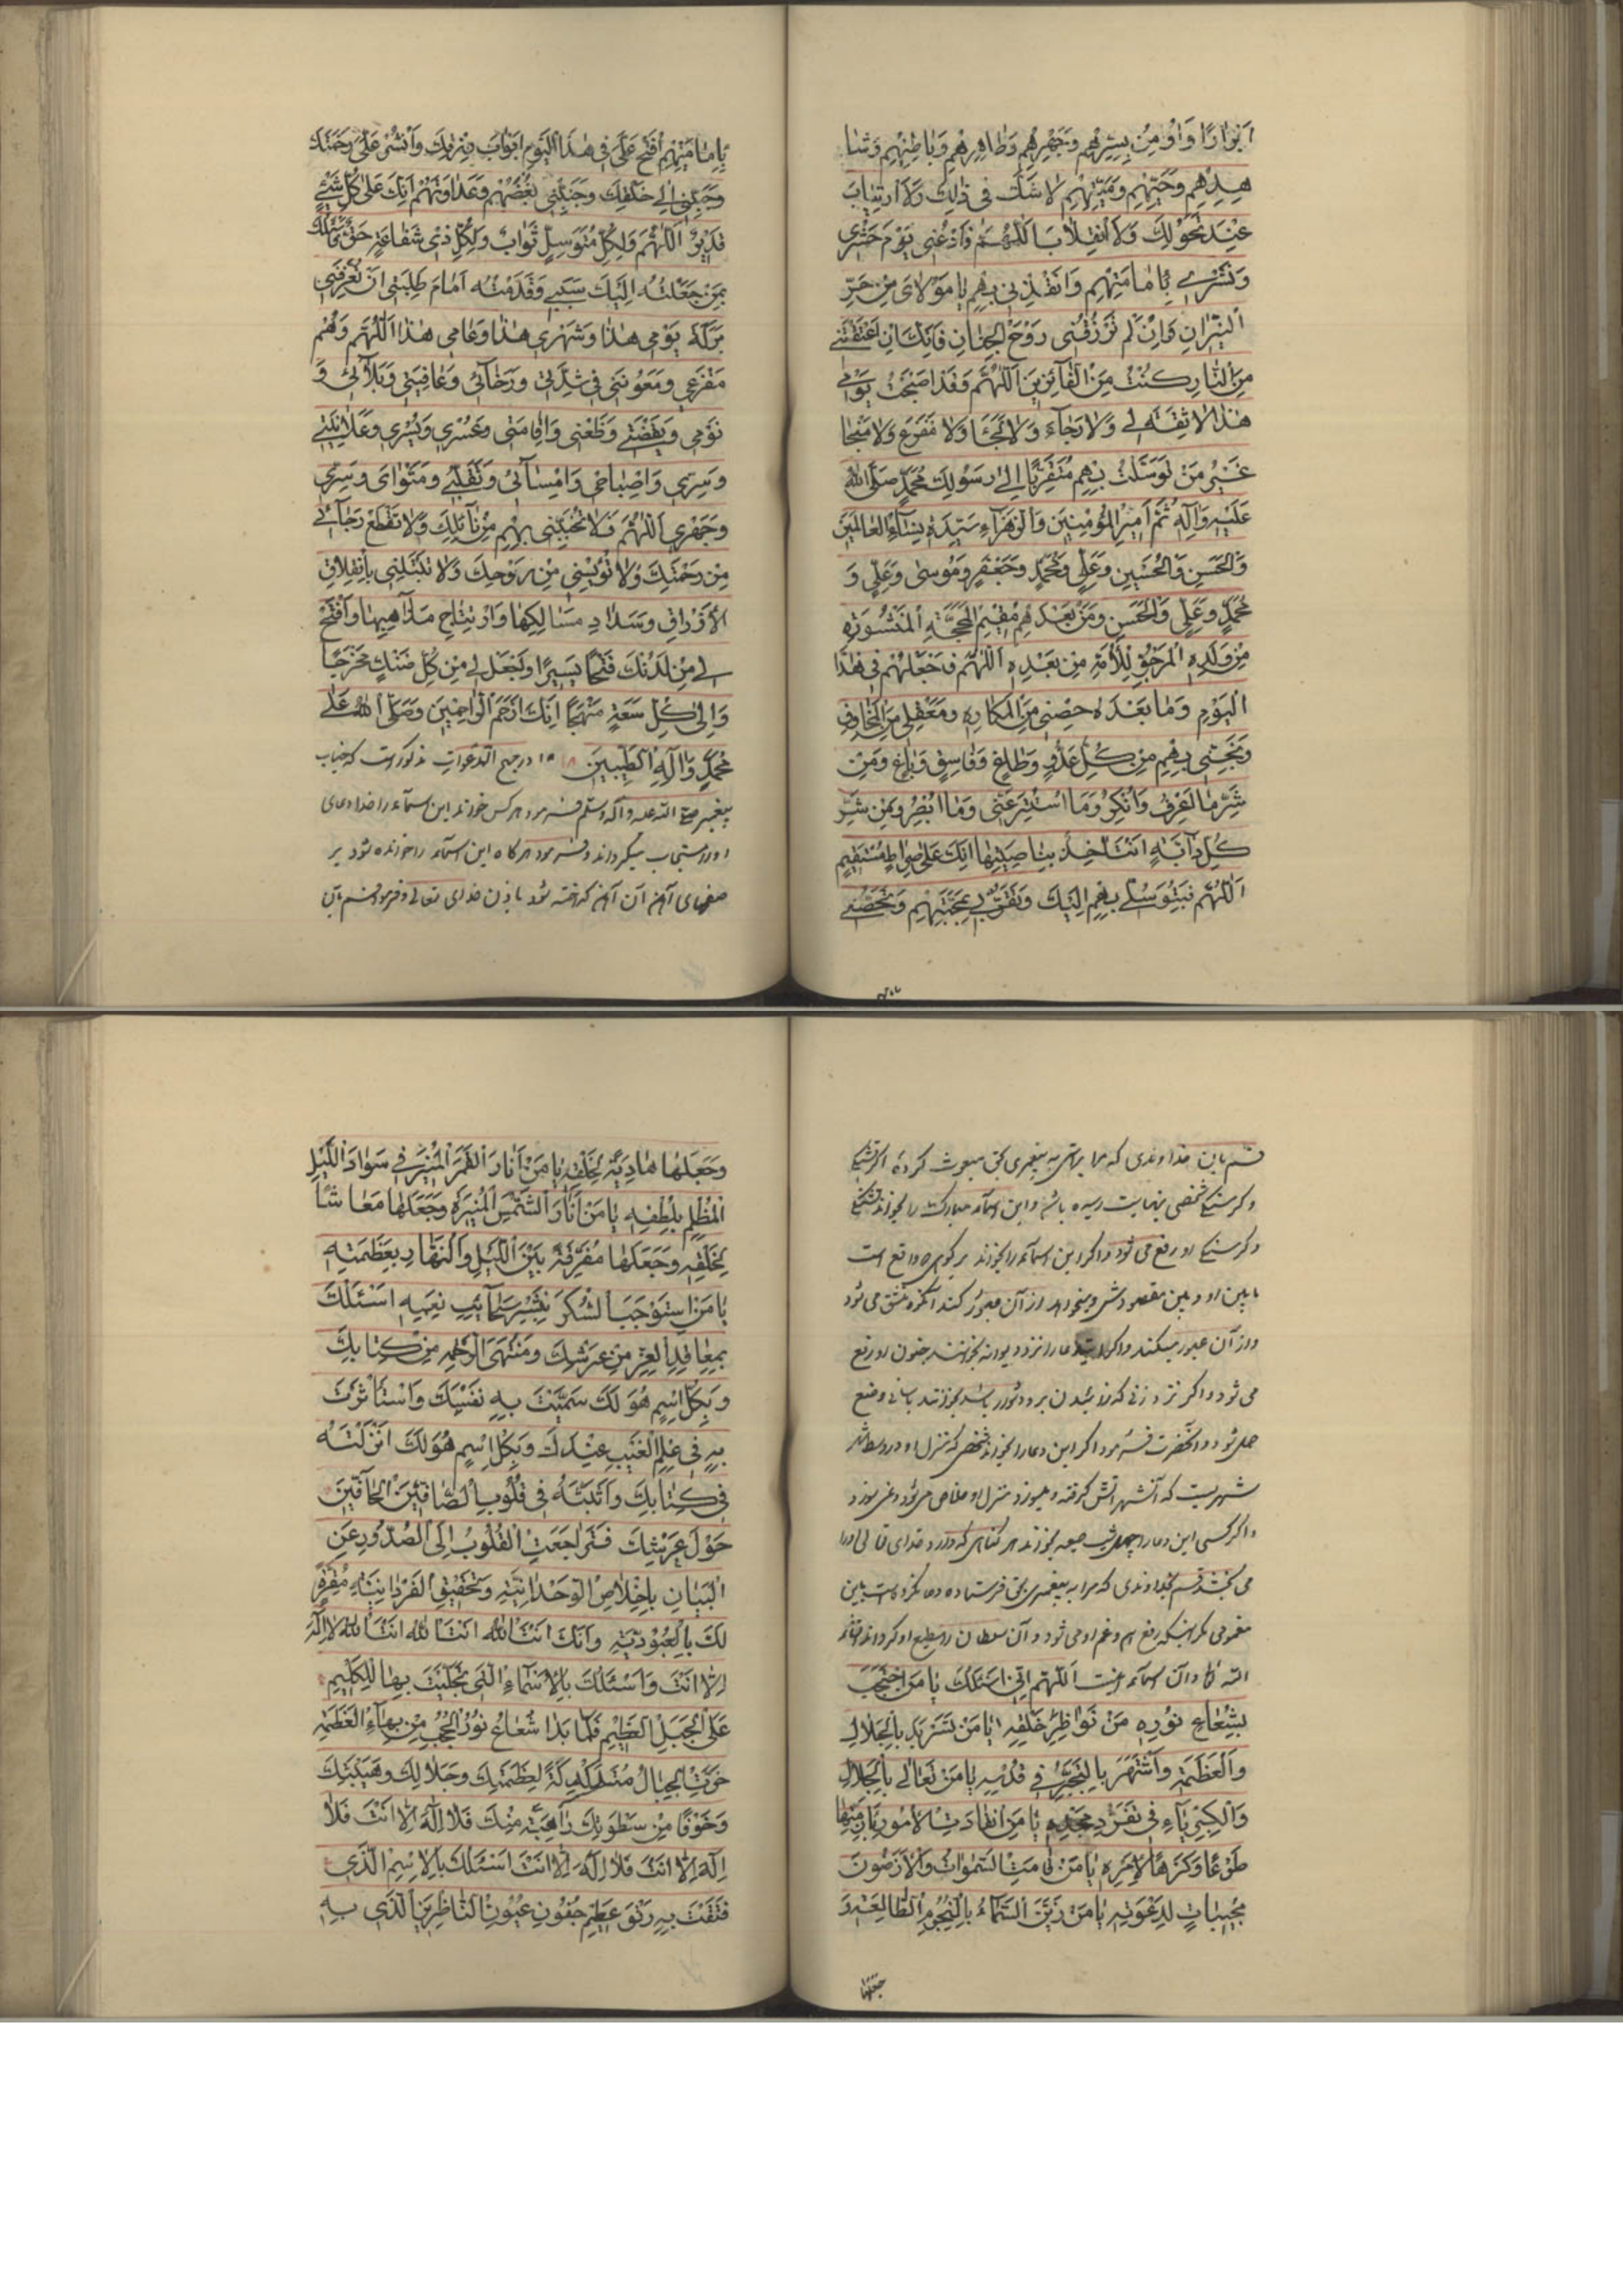 انوارا و اومن بسرهم وجهرهم وظاهرهم وباطنهم وشا
هدهم وحيّهم وميّتهم لا شك في ذلك ولا ارتياب
عند تحولك ولا انقلاب اللهمّ فادعني يوم حشري
ونشري بامامتهم وانقذني بهم يا مولاي من حرّ
النيران وان لم ترزقني روح الجنان فانك ان اعتقتني
من النار كنت من الفائزين اللهمّ وقد اصبحت يومي
هذا لا ثقة لي ولا رجاء ولا لجأ ولا مفزع ولا منجا
غير من توسّلت بهم متقربا الى رسولك محمّد صلّى الله
عليه وآله ثمّ امير المؤمنين والزهراء سيّدة نساء العالمين
والحسن والحسين وعلي ومحمّد وجعفر وموسى وعلي و
محمّد وعلي والحسن ومن بعدهم مقيم المحجّة المنشورة
من ولده المرجوّ للأمة من بعده اللهمّ فاجعلهم في هذا
اليوم وما بعده حصني من المكاره ومعقلي من المخاوف
ونجّني بهم من كلّ عدوّ وطاغ وفاسق وباغ ومن
شرّ ما اعرف وانكر وما استتر عنّي وما ابصر ومن شرّ
كلّ دآبّة انت آخذ بناصيتها انك على صراط مستقيم
اللهمّ فبتوسّلي بهم اليك وتقرّبي بمحبّتهم وتحصّني
بامامتهم افتح عليّ في هذا اليوم ابواب رزقك وانشر عليّ رحمتك
وحبّبني الى خلقك وجنّبني بغضهم وعداوتهم انك على كلّ شيء
قدير اللهمّ ولكلّ متوسّل ثواب ولكلّ ذي شفاعة حقّ فاسئلك
بمن جعلته اليك سببي وقدّمته امام طلبتي ان تعرّفني
بركة يومي هذا وشهري هذا وعامي هذا اللهمّ وهم
مفزعي ومعونتي في شدّتي ورخآئي وعافيتي وبلآئي و
نومي ويقضتي وظعني واقامتي وعسري ويسري وعلانيتي
وسرّي واصباحي وامسآئي وتقلّبي ومثواي وسرّي
وجهري اللهمّ فلا تخيّبني بهم من نآئلك ولا تقطع رجآئي
من رحمتك ولا تؤيسني من روحك ولا تبتلني بانغلاق
الارزاق وسداد مسالكها وارتتاج مذاهبها وافتح
لي من لدنك فتحا يسيرا واجعل لي من كلّ ضنك مخرجا
والى كلّ سعة منهجا انك ارحم الراحمين وصلّى الله على
محمّد وآله الطيبين در مهج الدعوات مذكور است كه جناب
پيغمبر صلى الله عليه وآله وسلم فرمود هر كس خواند اين اسمآء را خدا دعاى
او را مستجاب ميگرداند وفرمود هرگاه اين اسمآء را خوانده شود بر
صفحهاى آهن آن آهن گداخته شود باذن خداى تعالى وفرمود قسم باين
قسم باين خداوندى كه مرا براستى به پيغمبرى بحق مبعوث كرده اگر تشنگى
وگرسنگى شخصى بنهايت رسيده باشد واين اسمآء مباركه را بخواند تشنگى
وگرسنگى او رفع مى شود واگر اين اسمآء را بخواند بر كوهى كه واقع است
مابين او وبين مقصودش وميخواهد از آن عبور كند آن كوه منشق مى شود
واز آن عبور ميكند واگر دعا را نزد ديوانه بخوانند جنون او رفع
مى شود واگر نزد زنى كه زائيدن بر او دشوار باشد بخوانند بآسانى وضع
حمل شود وآنحضرت فرمود اگر اين دعا را بخواند شخصى كه منزل او در وسط
شهريست كه آنشهر آتش گرفته وميسوزد منزل او خلاص مى شود ونمى سوزد
واگر كسى اين دعا را چهل شب جمعه بخواند هر گناهى كه دارد خداى تعالى او را
مى بخشد قسم بخداوندى كه مرا به پيغمبرى بحق فرستاده دعا نكرده است باين
مغمومى مگر اينكه رفع هم وغم او مى شود وآن سلطان را مطيع او گرداند انشاء
الله تعالى وآن اسمآء اينست اللهمّ انّي اسئلك يا من احتجب
بشعاع نوره من نواظر خلقه يا من تسربل بالجلال
والعظمة واشتهر بالتجبّر في قدسه يا من تعالى بالجلال
والكبريآء في تفرّد مجده يا من انقادت الامور بازمّتها
طوعا وكرها لامره يا من قامت السموات والارضون
مجيبات لدعوته يا من زيّن السمآء بالنجوم الطالعة و
جعلها
وجعلها هادية لخلقه يا من انار القمر المنير في سواد الليل
المظلم بلطفه يا من انار الشمس المنيرة وجعلها معاشا
لخلقه وجعلها مفرّقة بين الليل والنهار بعظمته
يا من استوجب الشكر بنشر سحائب نعمه اسئلك
بمعاقد العزّ من عرشك ومنتهى الرحمة من كتابك
وبكلّ اسم هو لك سمّيت به نفسك واستأثرت
به في علم الغيب عندك وبكلّ اسم هو لك انزلته
في كتابك واثبتّه في قلوب الصافّين الحافّين
حول عرشك فتراجعت القلوب الى الصدور عن
البيان باخلاص الوحدانيّة وتحقيق الفردانيّة مقرّة
لك بالعبوديّة وانك انت الله انت الله انت الله لا اله
الا انت واسئلك بالاسمآء التي تجلّيت بها للكليم
على الجبل العظيم فلمّا بدا شعاع نور الحجب من بهآء العظمة
خرّت الجبال متدكدكة لعظمتك وجلالك وهيبتك
وخوفا من سطوتك راهبة منك فلا اله الا انت فلا
اله الا انت فلا اله الا انت اسئلك بالاسم الذي
فتقت به رتق عظيم جفون عيون الناظرين الذي به